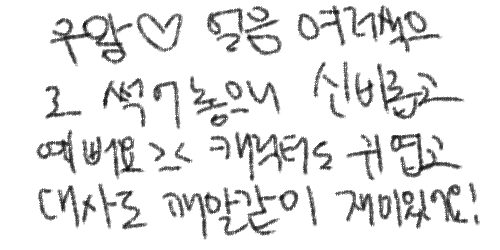 우왕♡ 얼음 여러색으
로 썩어놓으니 신비롭고
예뻐요 >< 캐릭터도 귀엽고
대사도 깨알같이 재미있geo!